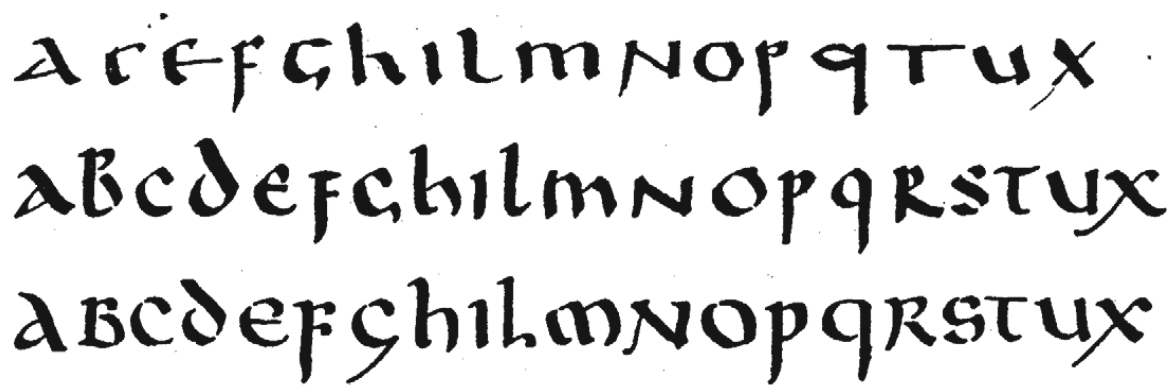 A C E F G h I L m N O P q T U X
A B C d E F G h I L m N O P q R S T U X
A B C d E F G h I L m N O P q R S T U X